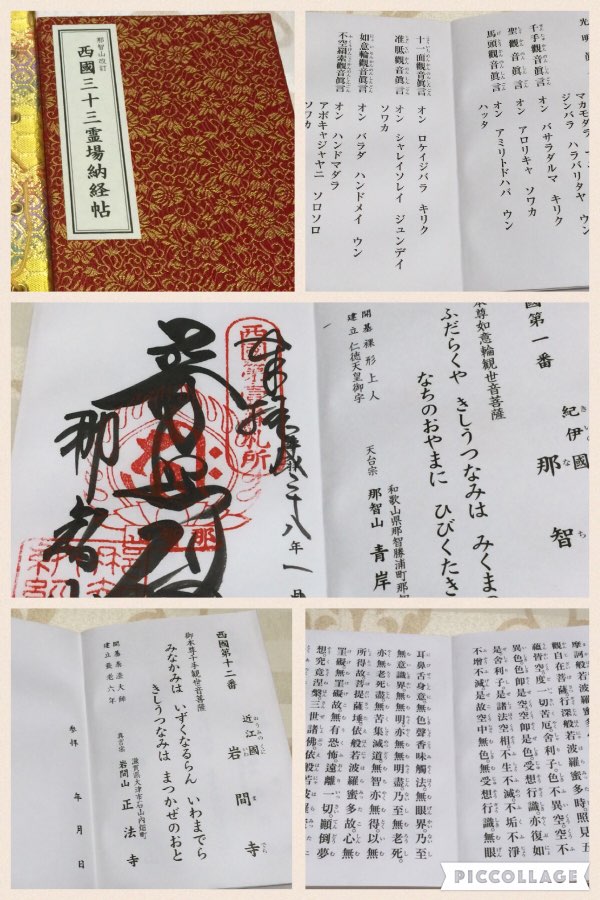 那智山改訂
西國三十三霊場納経帖
光明
マカモダラ
ジンバラ ハラバリタヤ ウン
千手觀音眞言 オン バサラダルマ キリク
聖觀音眞言 オン アロリキャ ソワカ
馬頭觀音眞言 オン アミリトドハバ ウン
ハッタ
十一面觀音眞言 オン ロケイジバラ キリク
准胝觀音眞言 オン シャレイソレイ ジュンデイ
ソワカ
如意輪觀音眞言 オン バラダ ハンドメイ ウン
不空羂索觀音眞言 オン ハンドマダラ
アボキャジャヤニ ソロソロ
ソワカ
國第一番
紀伊國 那智
本尊如意輪觀世音菩薩
ふだらくや きしうつなみは みくまの
なちのおやまに ひびくたき
和歌山県那智勝浦町那
天台宗 那智山 青岸
開基裸形上人
建立仁徳天皇御宇
西國第壹番札所
奉拝
二十八年一月
那智山
西國第十二番
近江國 岩間寺
御本尊千手觀世音菩薩
みなかみは いずくなるらん いわまでら
きしうつなみは まつかぜのおと
滋賀県大津市石山内畑町
真言宗 岩間山 正法寺
開基泰澄大師
建立養老六年
参拝 年 月 日
摩訶般若波羅蜜多時照見五
觀自在菩薩行深般若波羅
蘊皆空度一切苦厄舍利子色不異空空不
異色色即是空空即是色受想行識亦復如
是舍利子是諸法空相不生不滅不垢不淨
不增不減是故空中無色無受想行識無眼
耳鼻舌身意無色聲香味觸法無眼界乃至
無意識界無無明亦無無明盡乃至無老死
亦無老死盡無苦集滅道無智亦無得以無
所得故菩提薩埵依般若波羅蜜多故心無
罣礙無罣礙故無有恐怖遠離一切顚倒夢
想究竟涅槃三世諸佛依般若波羅
PICCOLLAGE